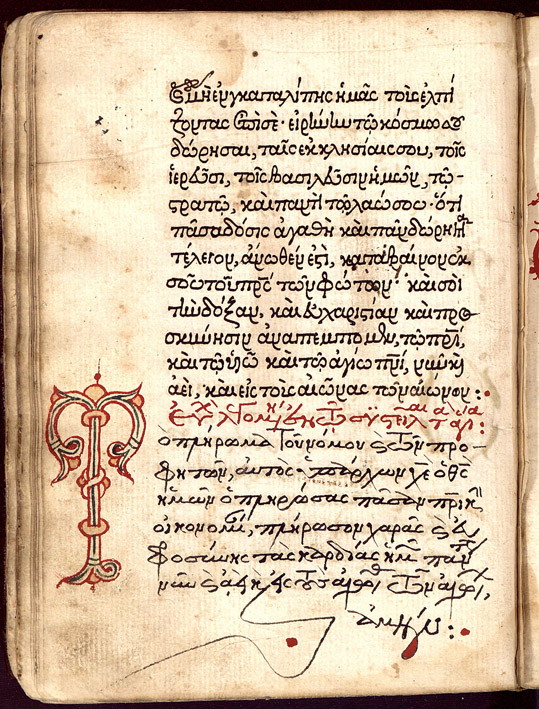 σου· μὴ ἐγκαταλίπης ἡμᾶς τοὺς ἐλπί
ζοντας ἐπὶ σέ· εἰρήνην τῷ κόσμω σου
δώρησαι, ταῖς ἐκκλησίαις σου, τοῖς
ἱερεῦσι, τοῖς βασιλεῦσιν ἡμῶν, τῷ
στρατῷ, καὶ παντὶ τῷ λαῷ σου· ὅτι
πᾶσα δόσις ἀγαθὴ καὶ πᾶν δώρημα
τέλειον, ἄνωθέν ἐστι, καταβαῖνον ἐκ
σοῦ τοῦ πρς τῶν φώτων· καὶ σοὶ
τὴν δόξαν, καὶ εὐχαριστίαν καὶ προ
σκύνησιν ἀναπέμπομεν, τῷ πρὶ,
καὶ τῷ υἱῷ καὶ τῷ ἁγίω πνὶ, νῦν καὶ
ἀεὶ, καὶ εἰς τοὺς αἰῶνας τῶν αἰώνων:
τὸ πλήρωμα τοῦ νόμου καὶ τῶν προ
φητῶν, αὐτὸς ὑπάρχων χε ὁ θς
ἡμῶν ὁ πληρώσας πᾶσαν τὴν πρικὴν
οἰκονομίαν, πλήρωσον χαρᾶς καὶ εὐ
φροσύνης τὰς καρδίας ἡμῶν πάντοτε
νῦν καὶ ἀεὶ καὶ εἰς τοὺς αἰῶνας τῶν αἰώνων,
ἀμήν: